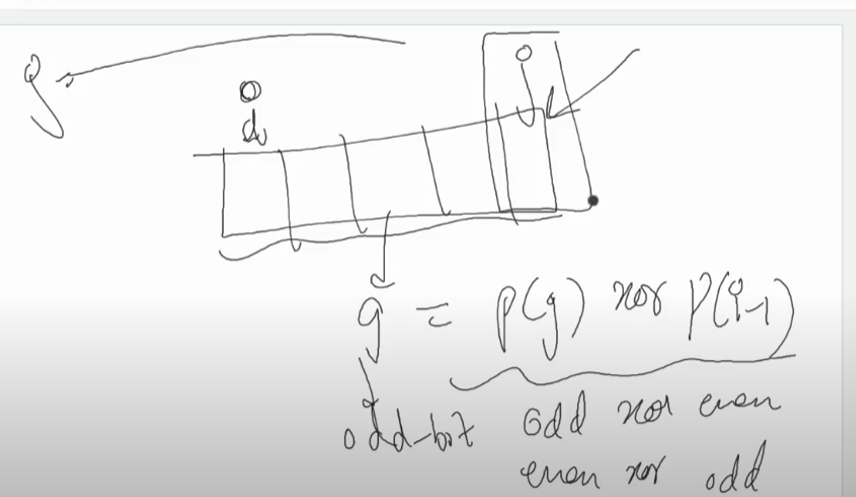 g = p(j) xor p(i-1)
odd-bit odd xor even
even xor odd